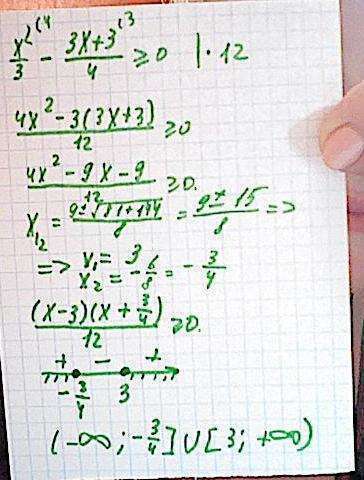 x²⁽⁴/3 - 3x+3⁽³/4 ≥ 0 | · 12
4x² - 3(3x+3)/12 ≥ 0
4x² - 9x - 9/12 ≥ 0.
x₁₂ = 9±√81+144/8 = 9 ± 15/8 =>
=> x₁ = 3
x₂ = -6/8 = -3/4
(x-3)(x+3/4)/12 ≥ 0.
+ - +
-3/4 3
(-∞; -3/4] ∪ [3; +∞)